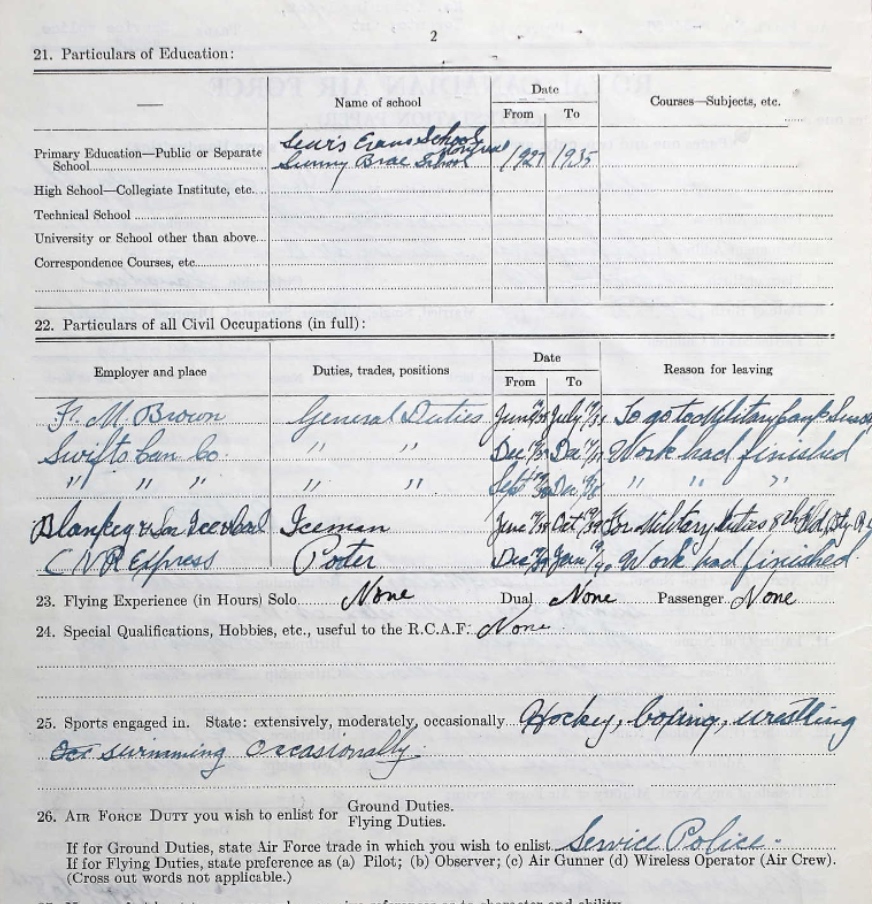 2
21. Particulars of Education:
Name of school
Date
From To
Courses—Subjects, etc.
Lewis Evans School
Montreal
Primary Education—Public or Separate School Sunny Brae School 1927 1935
High School—Collegiate Institute, etc.
Technical School
University or School other than above
Correspondence Courses, etc.
22. Particulars of all Civil Occupations (in full):
Employer and place
Duties, trades, positions
Date
From To
Reason for leaving
F. M. Brown General Duties June July To go to Military Camp
Swifts Can Co. " " Dec Dec Work had finished
" " " " " Sept Dec " " "
Blankey & Son Ice & Coal Iceman June Oct For Military Duties 8th
CNR Express Porter Dec Jan Work had finished.
23. Flying Experience (in Hours) Solo None Dual None Passenger None
24. Special Qualifications, Hobbies, etc., useful to the R.C.A.F: None
25. Sports engaged in. State: extensively, moderately, occasionally Hockey, boxing, wrestling
swimming occasionally.
26. AIR FORCE DUTY you wish to enlist for Ground Duties.
Flying Duties.
If for Ground Duties, state Air Force trade in which you wish to enlist Service Police.
If for Flying Duties, state preference as (a) Pilot; (b) Observer; (c) Air Gunner (d) Wireless Operator (Air Crew).
(Cross out words not applicable.)